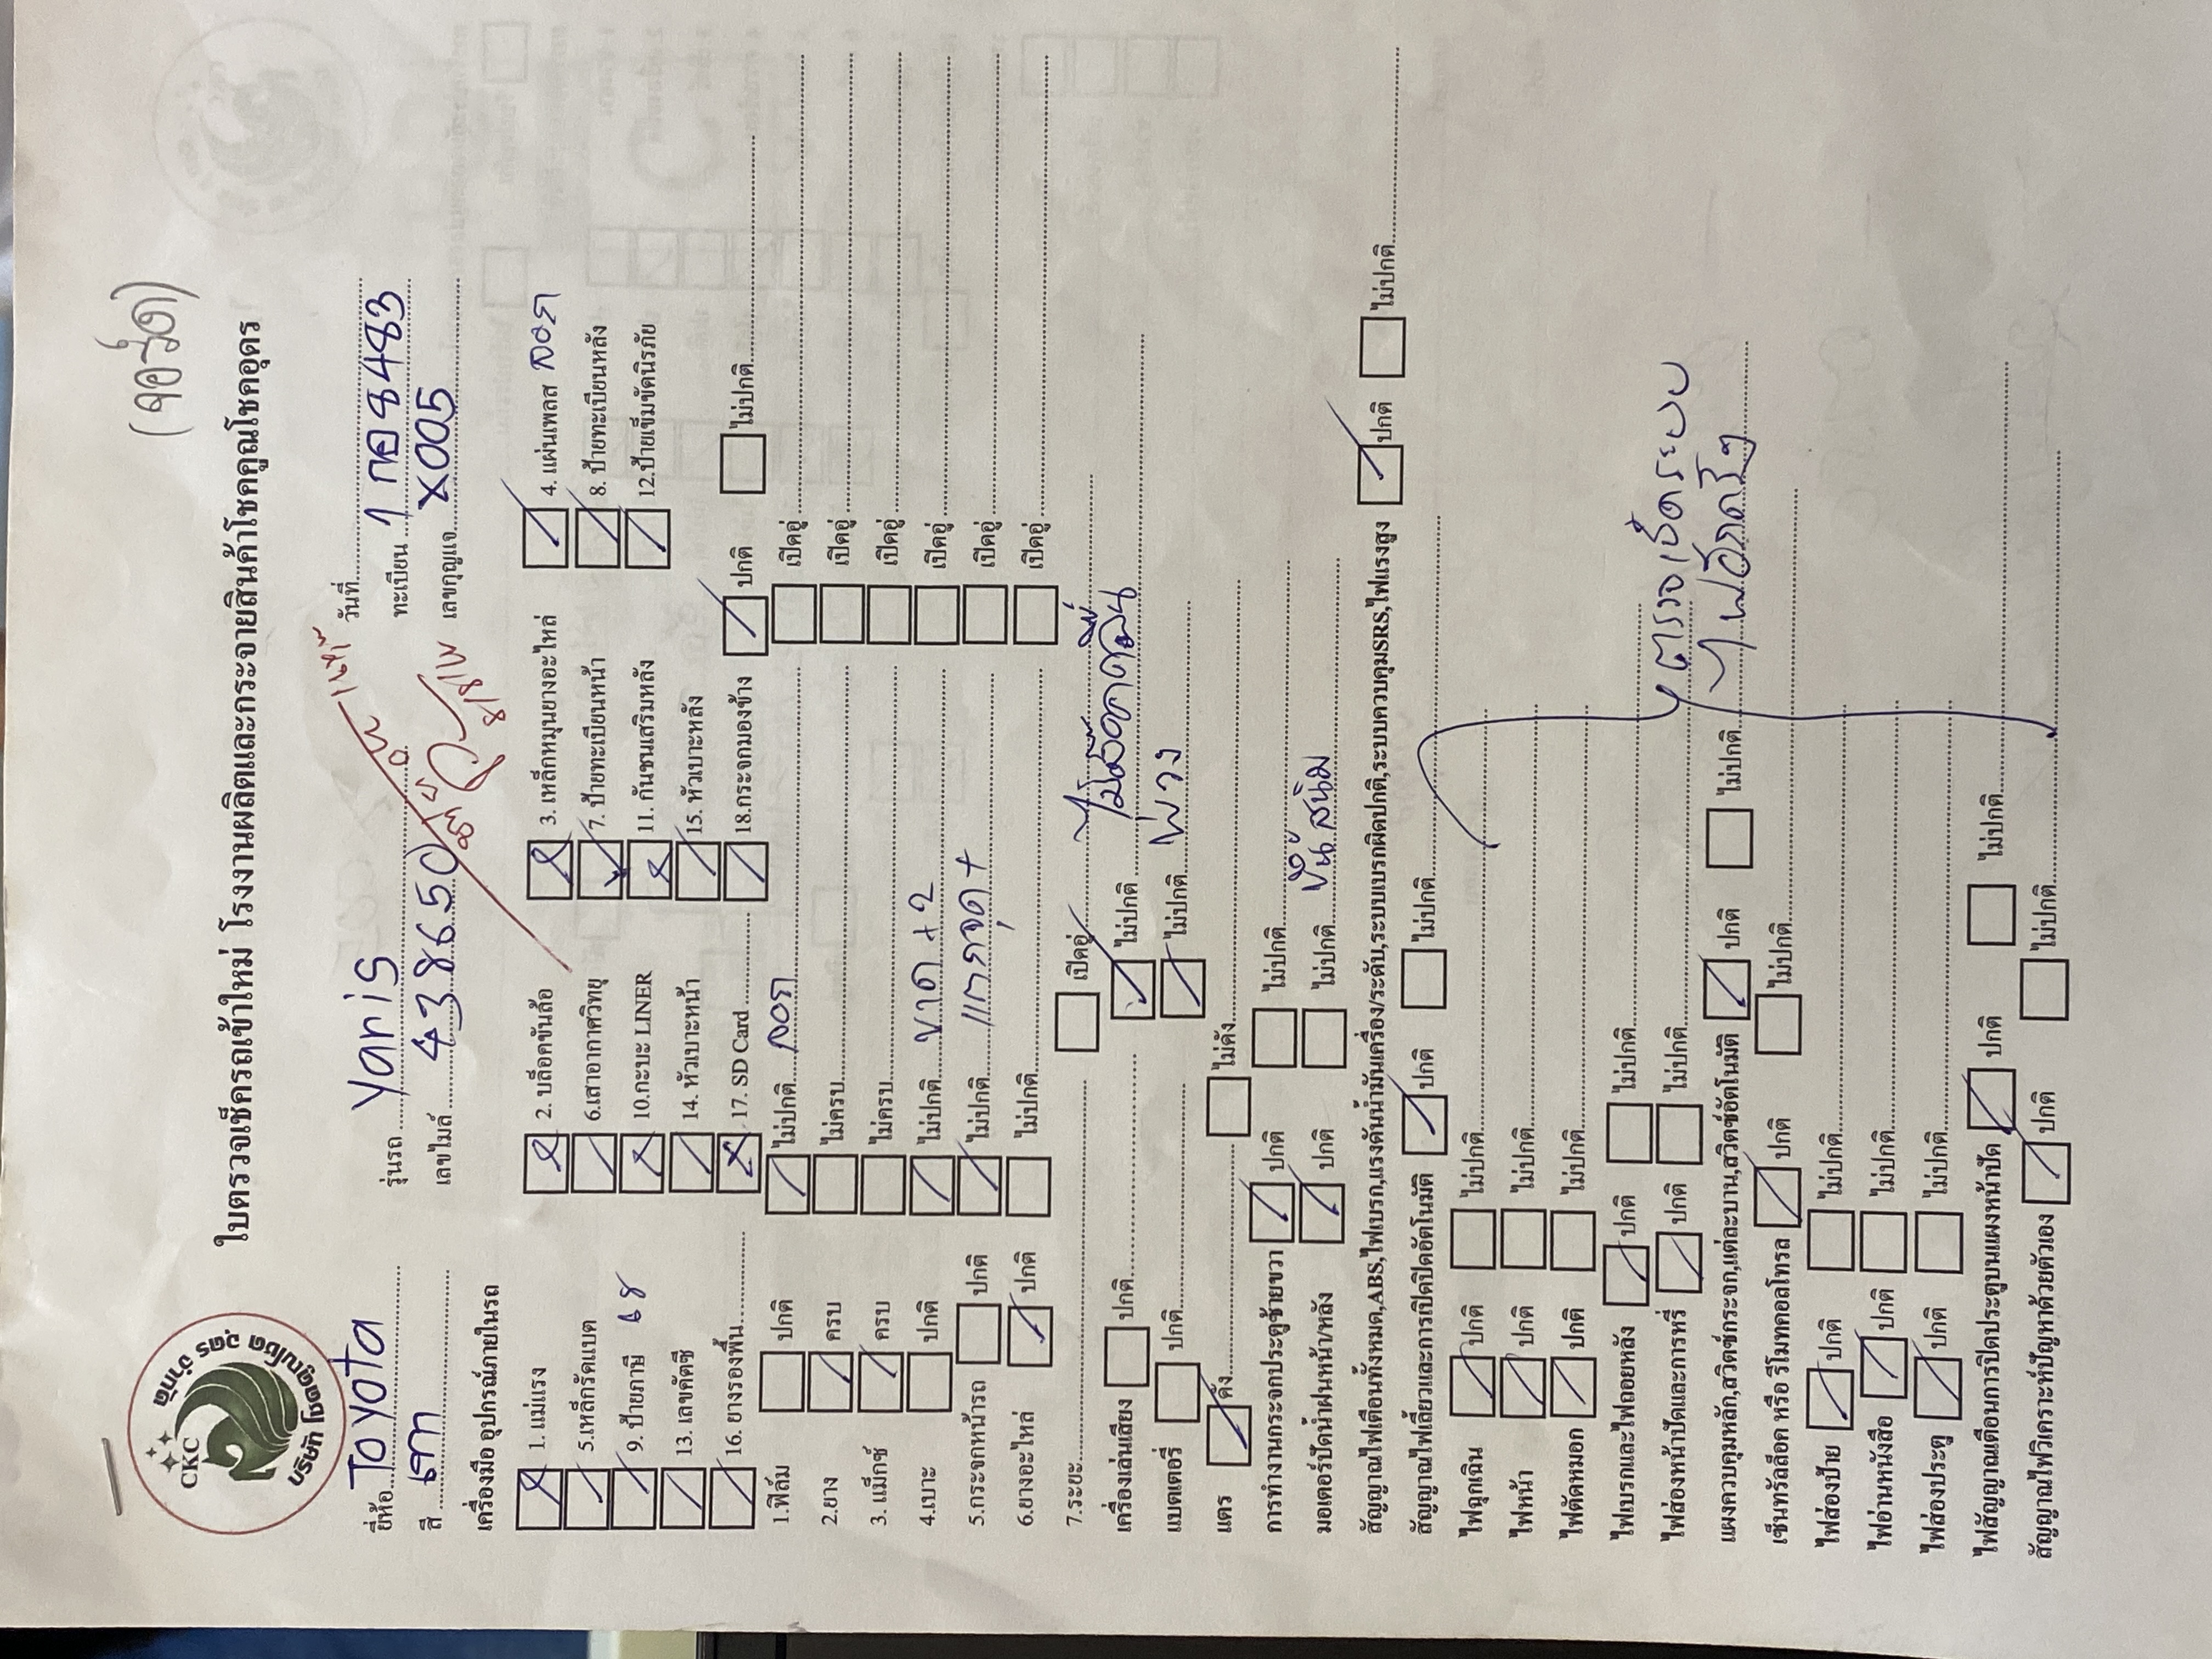 (จอร์ด)
CKC
บริษัท โชคคูณโชค อุดร จำกัด
ใบตรวจเช็ครถเข้าใหม่ โรงงานผลิตและกระจายสินค้าโชคคูณโชคอุดร
ยี่ห้อ Toyota รุ่นรถ Yaris วันที่
สี เทา เลขไมล์ 438650 ทะเบียน 1 กอ 8483
เลขกุญแจ X005
เครื่องมือ อุปกรณ์ภายในรถ
1. แม่แรง 2. บล็อคขันล้อ 3. เหล็กหมุนยางอะไหล่ 4. แผ่นเพลส ลอก
5.เหล็กรัดแบต 6.เสาอากาศวิทยุ 7. ป้ายทะเบียนหน้า 8. ป้ายทะเบียนหลัง
9. ป้ายภาษี 68 10.กะบะ LINER 11. กันชนเสริมหลัง 12.ป้ายเข็มขัดนิรภัย
13. เลขคัตซี 14. หัวเบาะหน้า 15. หัวเบาะหลัง
16. ยางรองพื้น 17. SD Card 18.กระจกมองข้าง ปกติ ไม่ปกติ
1.ฟิล์ม ปกติ ไม่ปกติ ลอก เปิดอู่
2.ยาง ครบ ไม่ครบ เปิดอู่
3. แม็กซ์ ครบ ไม่ครบ เปิดอู่
4.เบาะ ปกติ ไม่ปกติ ขาด +2 เปิดอู่
5.กระจกหน้ารถ ปกติ ไม่ปกติ แตกจุด + เปิดอู่
6.ยางอะไหล่ ปกติ ไม่ปกติ เปิดอู่
7.ระยะ เปิดอู่
เครื่องเล่นเสียง ปกติ ไม่ปกติ
แบตเตอรี่ ปกติ ไม่ปกติ พ่วง
แตร ดัง ไม่ดัง
การทำงานกระจกประตูซ้ายขวา ปกติ ไม่ปกติ
มอเตอร์ปัดน้ำฝนหน้า/หลัง ปกติ ไม่ปกติ ขึ้นสนิม
สัญญาณไฟเตือนทั้งหมด,ABS,ไฟเบรก,แรงดันน้ำมันเครื่อง/ระดับ,ระบบเบรกผิดปกติ,ระบบควบคุมSRS,ไฟแรงสูง ปกติ ไม่ปกติ
สัญญาณไฟเลี้ยวและการเปิดปิดอัตโนมัติ ปกติ ไม่ปกติ
ไฟฉุกเฉิน ปกติ ไม่ปกติ
ไฟหน้า ปกติ ไม่ปกติ
ไฟตัดหมอก ปกติ ไม่ปกติ
ไฟเบรกและไฟถอยหลัง ปกติ ไม่ปกติ
ไฟส่องหน้าปัดและการหรี่ ปกติ ไม่ปกติ ตรวจเช็คระบบ
แผงควบคุมหลัก,สวิตช์กระจก,แต่ละบาน,สวิตช์อัตโนมัติ ปกติ ไม่ปกติ ไฟอีกครั้งๆ
เซ็นทรัลล็อค หรือ รีโมทคอลโทรล ปกติ ไม่ปกติ
ไฟส่องป้าย ปกติ ไม่ปกติ
ไฟอ่านหนังสือ ปกติ ไม่ปกติ
ไฟส่องประตู ปกติ ไม่ปกติ
ไฟสัญญาณเตือนการปิดประตูบนแผงหน้าปัด ปกติ ไม่ปกติ
สัญญาณไฟวิเคราะห์ปัญหาด้วยตัวเอง ปกติ ไม่ปกติ